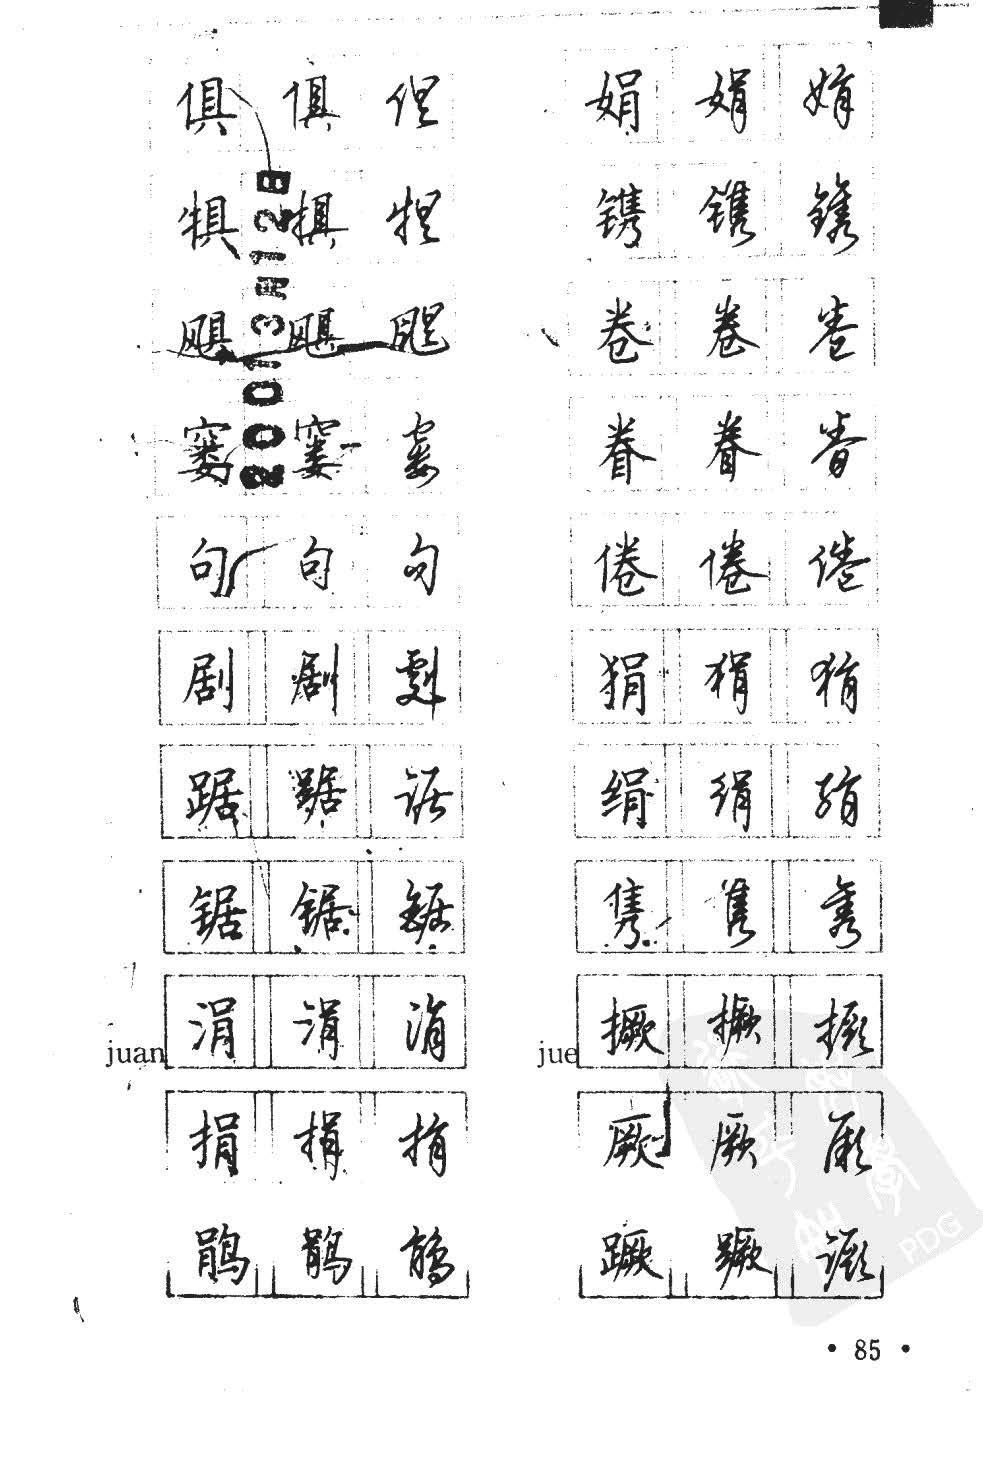 俱 俱 俱
犋 犋 犋
飓 飓 飓
窭 窭 窭
句 句 句
剧 剧 剧
踞 踞 踞
锯 锯 锯
juan 涓 涓 涓
捐 捐 捐
鹃 鹃 鹃
娟 娟 娟
镌 镌 镌
卷 卷 卷
眷 眷 眷
倦 倦 倦
狷 狷 狷
绢 绢 绢
隽 隽 隽
jue 撅 撅 撅
厥 厥 厥
蹶 蹶 蹶
PDG
• 85 •